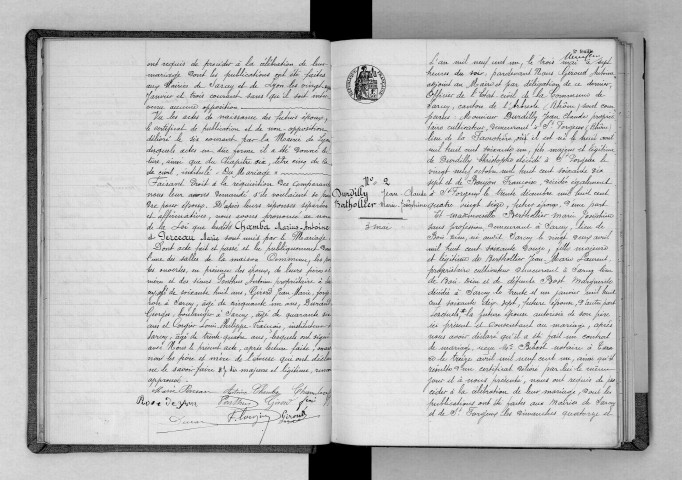 ont requis de procéder à la célébration de leur
mariage dont les publications ont été faites
aux Mairies de Sarcey et de Lyon les vingt
Janvier et trois courant sans qu'il soit inter
venu aucune opposition
Vu les actes de naissance des futurs époux,
le certificat de publication et de non opposition
délivré le six courant par la Mairie de Lyon
desquels actes en due forme il a été donné lec
ture, ainsi que du Chapitre six, titre cinq du Code
civil, intitulé : Du Mariage
Faisant droit à la réquisition des comparants
nous leur avons demandé s'ils voulaient se prendre
pour époux. D'après leurs réponses séparées
et affirmatives, nous avons prononcé au nom
de la Loi que lesdits Chamba Marius Antoine
et Perceau Marie sont unis par le Mariage.
Dont acte fait et passé et lu publiquement dans
l'une des salles de la maison Commune, les por
tes ouvertes, en présence des époux, de leurs père et
mère et des sieurs Ponthus Antoine propriétaire à
âgé de soixante huit ans, Giroud Jean Marie, forge
ron à Sarcey, âgé de cinquante un ans, Durand
boulanger à Sarcey, âgé de quarante six
ans et Louis Philippe François, instituteur à
Sarcey, âgé de trente quatre ans, lesquels ont signé
avec Nous le présent acte, après lecture faite,
non les père et mère de l'époux qui ont déclaré
ne le savoir faire
approuvé
Marie Perceau
Chamba
Ponthus
Giroud
Durand
Giroud
N° 2
Durdilly Jean Claude
Bathollier Marie Joséphine
3 mai
2e feuille
L'an mil neuf cent un, le trois mai à sept
heures du soir, pardevant Nous Giroud Antoine
adjoint au Maire et par délégation de ce dernier
Officier de l'état civil de la Commune de
Sarcey, canton de l'Arbresle (Rhône) sont com
parus : Monsieur Durdilly Jean Claude proprié
taire cultivateur, demeurant à St Forgeux (Rhône)
lieu de où il est né le huit août
mil huit cent soixante un, fils majeur et légitime
de Durdilly Christophe décédé à St Forgeux le
vingt neuf octobre mil huit cent soixante dix
sept et de Françoise décédée également
à St Forgeux le trente décembre mil huit cent
quatre vingt seize, futur époux, d'une part
Et mademoiselle Berthollier Marie Joséphine
sans profession demeurant à Sarcey, lieu de
Bois Dieu, née audit Sarcey le vingt neuf avril
mil huit cent soixante douze, fille majeure
et légitime de Berthollier Jean Marie Laurent,
propriétaire cultivateur demeurant à Sarcey lieu
de Bois Dieu et de défunte Marguerite
décédée à Sarcey le trente et un janvier mil huit
cent soixante dix sept, future épouse, d'autre part
laquelle la future épouse autorisée de son père
ici présent et consentant au mariage, après
nous avoir déclaré qu'il a été fait un contrat
de mariage, reçu Me notaire à
le treize avril mil neuf cent un, ainsi qu'il
résulte d'un certificat délivré par lui le même
jour et à nous présenté, nous ont requis de pro
céder à la célébration de leur mariage, dont les
publications ont été faites aux Mairies de Sarcey
et de St Forgeux les dimanches quatorze et